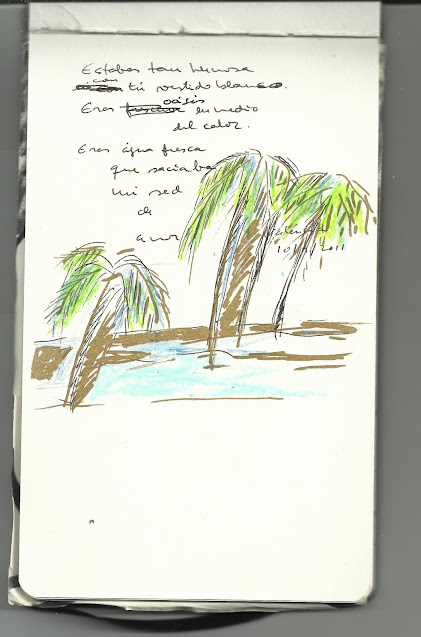 Estabas tan hermosa
con tú vestido blanco.
Eras oásis en medio
del calor.
Eras água fresca
que saciaba
mi sed
de
amor
Valencia